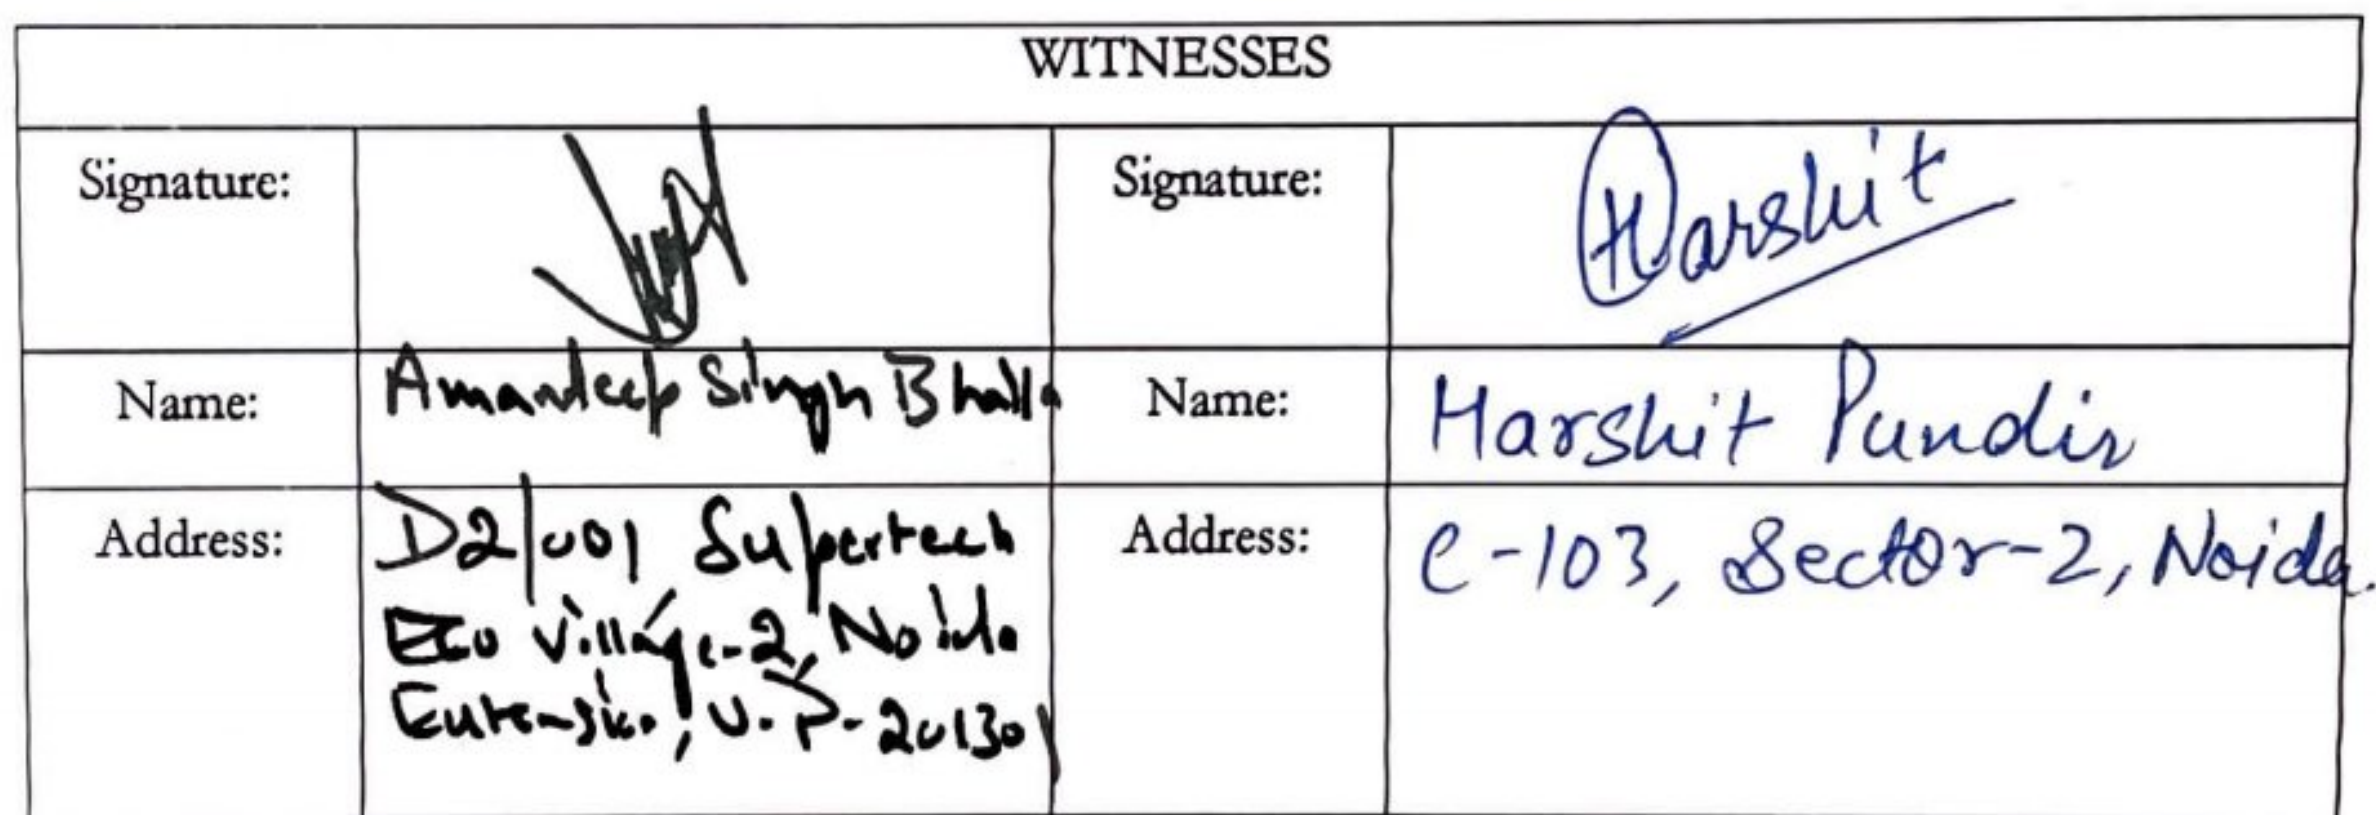 WITNESSES
Signature:
Signature: Harshit
Name: Amandeep Singh Bhalla
Name: Harshit Pundir
Address: D2/001 Supertech
Eco Village-2, Noida
Extension, U.P-201301
Address: C-103, Sector-2, Noida.